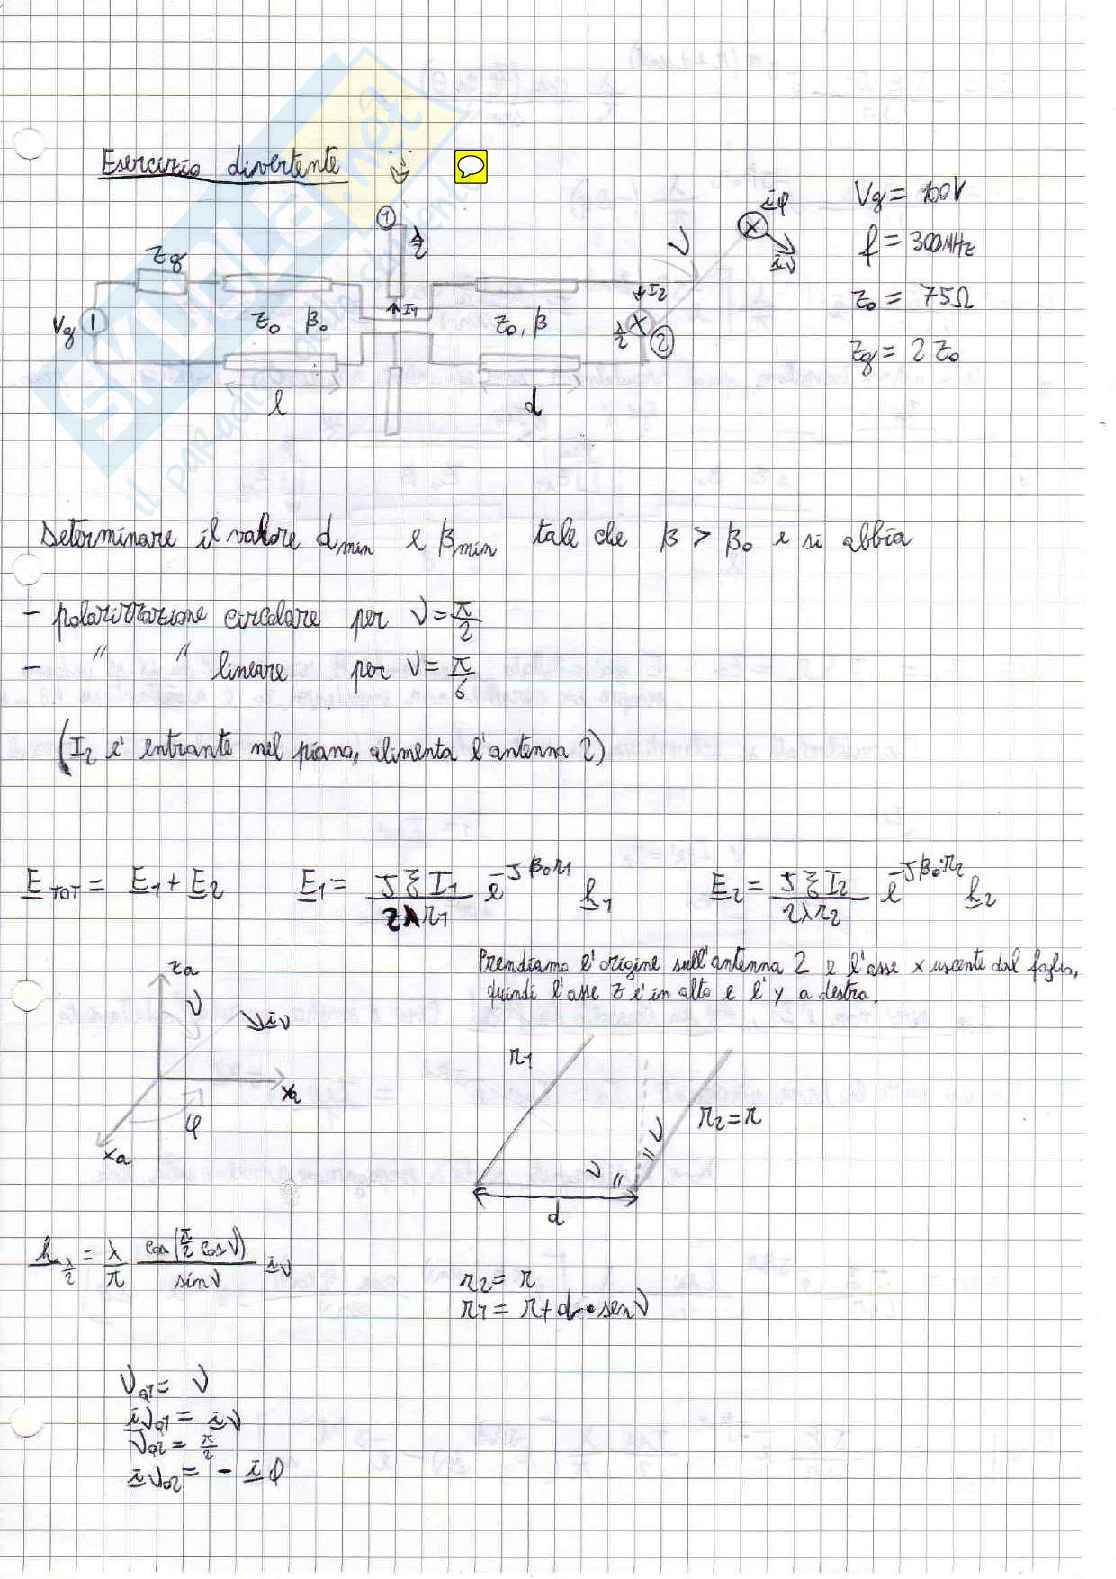 Esercizio divertente
1
λ/2
iφ
iν
ν
Vg = 100V
f = 300MHz
Z0 = 75Ω
Zg = 2 Z0
Zg
Vg
Z0 β0
I1
Z0, β
I2
λ/2
2
l
d
Determinare il valore dmin e βmin tale che β > β0 e si abbia
- polarizzazione circolare per ν = π/2
- " " lineare per ν = π/6
(I2 e' entrante nel piano, alimenta l'antenna 2)
E TOT = E1 + E2 E1 = Jξ I1 / 2λ r1 e^-Jβ0r1 h1 E2 = Jξ I2 / 2λ r2 e^-Jβ0·r2 h2
Prendiamo l'origine sull'antenna 2 e l'asse x uscente dal foglio,
quindi l'asse z e' in alto e l'y a destra.
za
ν
iν
φ
xa
r1
r2 = r
ν
ν
d
h λ/2 = λ/π cos(π/2 cosν) / sinν iν
r2 = r
r1 = r + d · senν
νa1 = ν
iνa1 = iν
νa2 = π/2
iνa2 = - iφ
SKUOLA.net
il paradiso dello studente